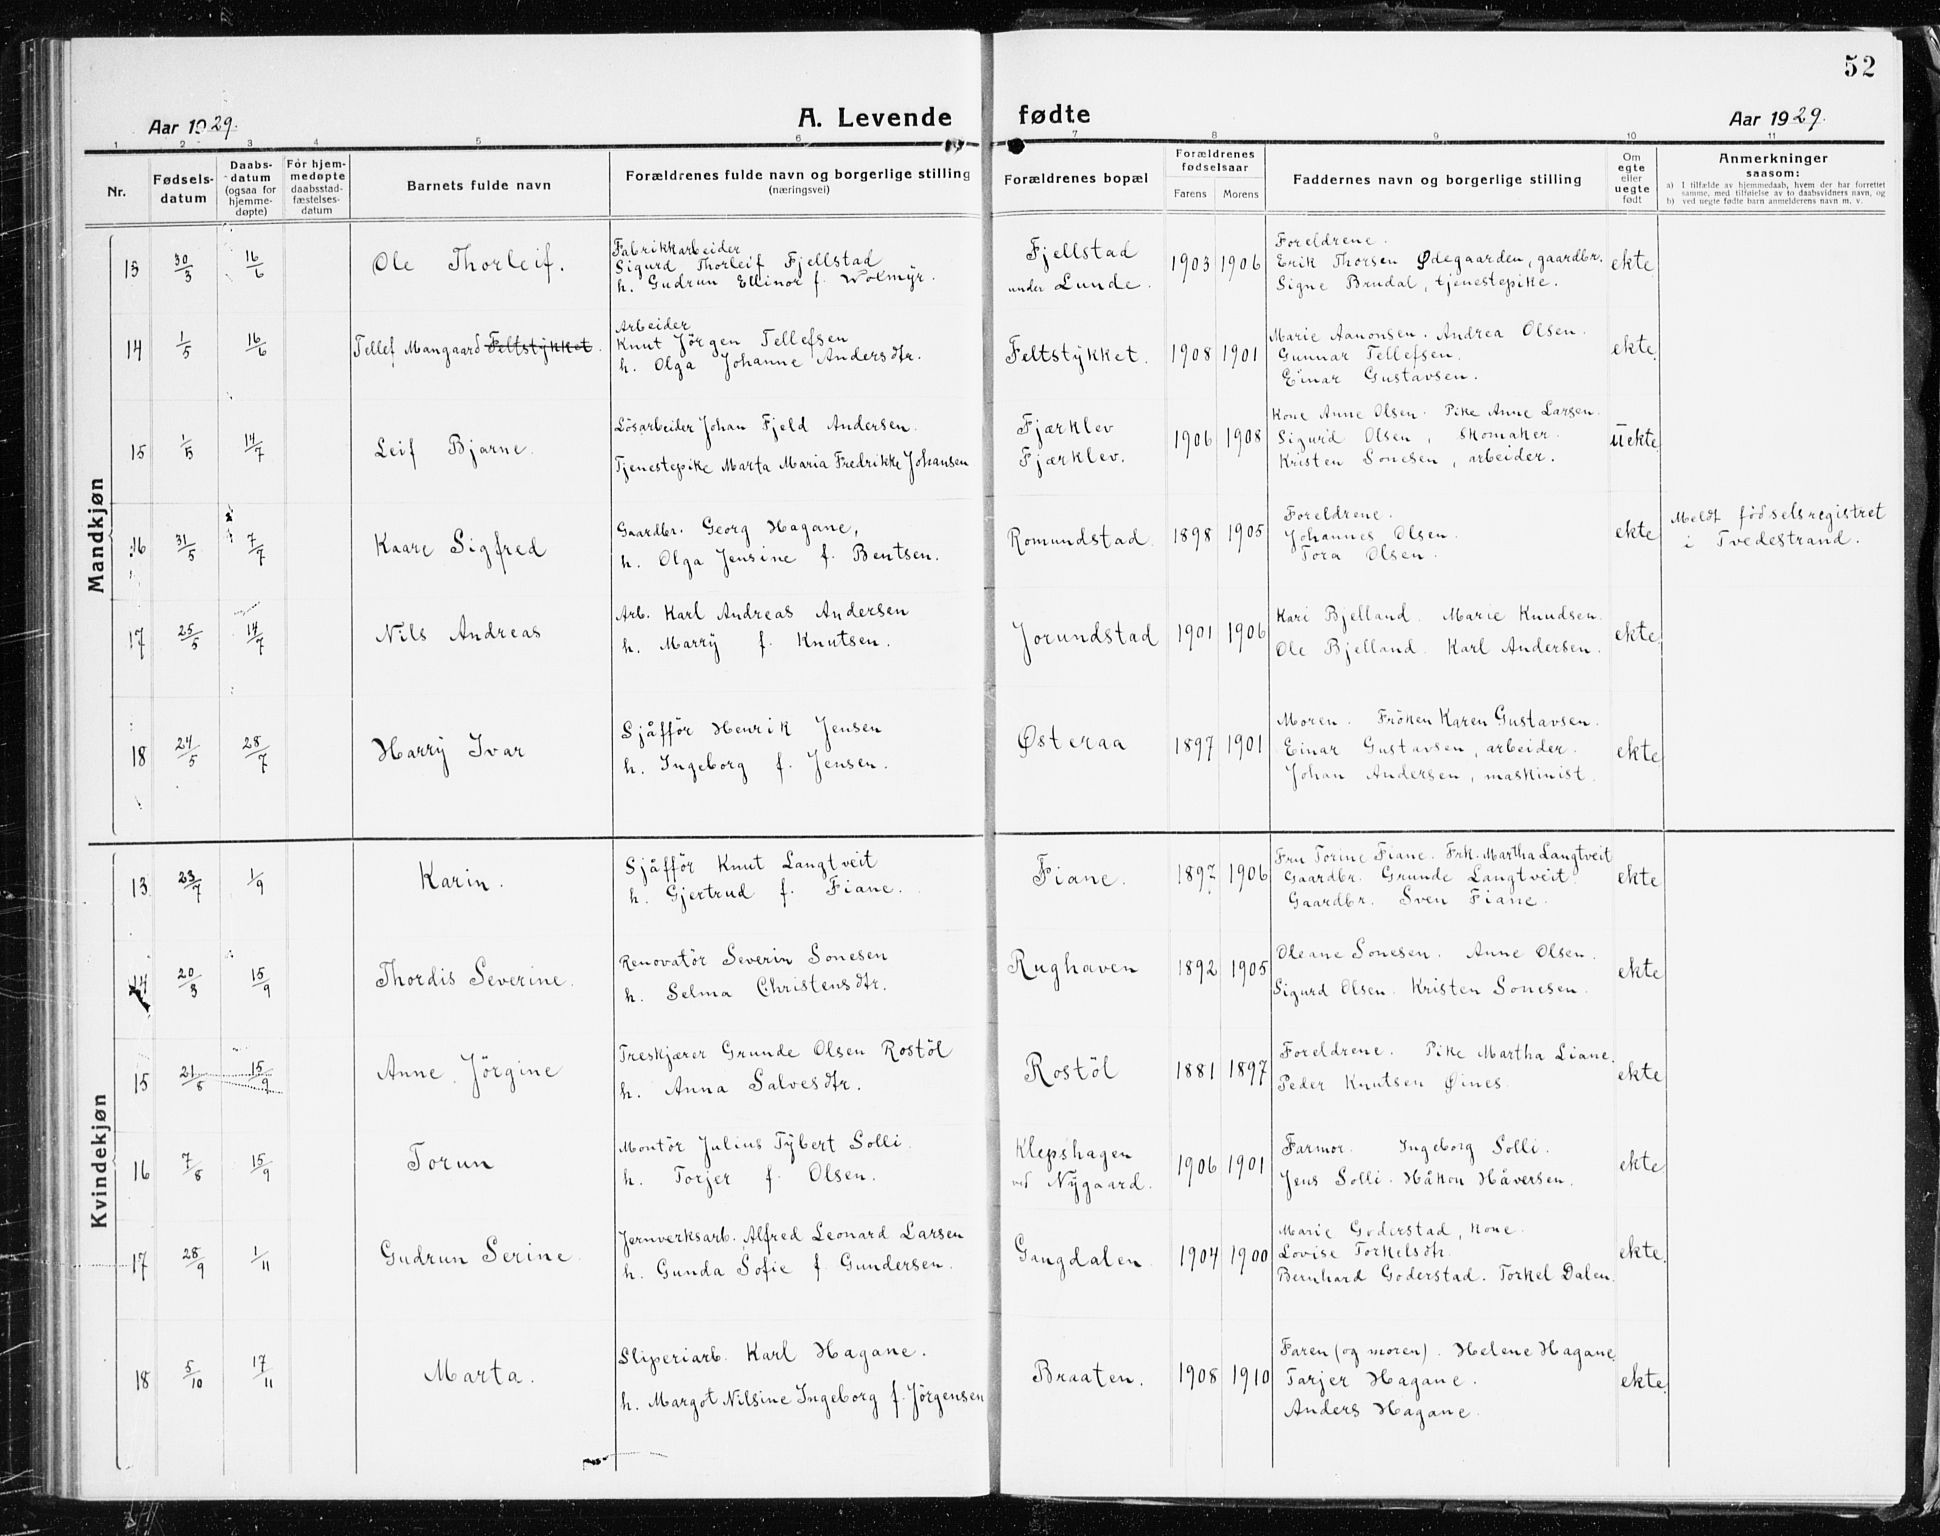 52
Aar 1929.
A. Levende fødte
Aar 1929.
1 2 3 4 5 6 7 8 9 10 11
Nr.
Fødsels-
datum
Daabs-
datum
(ogsaa for
hjemme-
døpte)
For hjem-
medøpte
daabsstad-
fæstelses-
datum
Barnets fulde navn
Forældrenes fulde navn og borgerlige stilling
(næringsvei)
Forældrenes bopæl
Forældrenes
fødselsaar
Farens Morens
Faddernes navn og borgerlige stilling
Om
egte
eller
uegte
født
Anmerkninger
saasom:
a) I tilfælde av hjemmedaab, hvem der har forrettet
samme, med tilføielse av to daabsvidners navn, og
b) ved uegte fødte barn anmelderens navn m. v.
Mandkjøn
13 30/3 16/6 Ole Thorleif.
Fabrikkarbeider
Sigurd Thorleif Fjellstad
h. Gudrun Ellinor f. Wolmyr.
Fjellstad
under Lunde.
1903 1906
Foreldrene.
Erik Thorsen Ødegaarden, gaardbr.
Signe Brudal, tjenestepike.
ekte
14 1/5 16/6 Tellef Mangaard Feltstykket.
Arbeider
Knut Jörgen Tellefsen
h. Olga Johanne Andersdtr.
Feltstykket.
1908 1901
Marie Aanonsen. Andrea Olsen.
Gunnar Tellefsen.
Einar Gustavsen.
ekte.
15 1/5 14/7 Leif Bjarne.
Lösarbeider Johan Fjeld Andersen.
Tjenestepike Marta Maria Fredrikke Johansen
Fjærklev
Fjærklev.
1906 1908
Kone Anne Olsen. Pike Anne Larsen.
Sigurd Olsen, skomaker.
Kristen Sonesen, arbeider.
uekte
16 31/5 7/7 Kaare Sigfred
Gaardbr. Georg Hagane,
h. Olga Jensine f. Bentsen.
Romundstad.
1898 1905
Foreldrene.
Johannes Olsen.
Tora Olsen.
ekte
Meldt födselsregistret
i Tvedestrand.
17 25/5 14/7 Nils Andreas
Arb. Karl Andreas Andersen
h. Marry f. Knutsen.
Jorundstad
1901 1906
Kari Bjelland. Marie Knudsen.
Ole Bjelland. Karl Andersen.
ekte.
18 24/5 28/7 Harry Ivar
Sjåfför Henrik Jensen
h. Ingeborg f. Jensen.
Østeraa
1897 1901
Moren. Fröken Karen Gustavsen.
Einar Gustavsen, arbeider.
Johan Andersen, maskinist.
ekte
Kvindekjøn
13 23/7 1/9 Karin.
Sjåfför Knut Langtveit
h. Gjertrud f. Fiane.
Fiane.
1897 1906
Fru Torine Fiane. Frk. Martha Langtveit
Gaardbr. Grunde Langtveit.
Gaardbr. Sven Fiane.
ekte
14 20/3 15/9 Thordis Severine.
Renovatör Severin Sonesen
h. Selma Christensdtr.
Rughaven
1892 1905
Oleane Sonesen. Anne Olsen.
Sigurd Olsen. Kristen Sonesen.
ekte
15 21/8 15/9 Anne Jörgine
Treskjærer Grunde Olsen Rostöl
h. Anna Salvesdtr.
Rostöl
1881 1897
Foreldrene. Pike Martha Liane.
Peder Knutsen Øines.
ekte
16 7/8 15/9 Torun
Montör Julius Tybert Solli.
h. Torjer f. Olsen.
Klepshagen
ved Nygaard.
1906 1901
Farmor. Ingeborg Solli.
Jens Solli. Håkon Håversen.
ekte
17 28/9 1/11 Gudrun Serine.
Jernverksarb. Alfred Leonard Larsen
h. Gunda Sofie f. Gundersen.
Gangdalen.
1904 1900
Marie Goderstad, kone.
Lovise Torkelsdtr.
Bernhard Goderstad. Torkel Dalen.
ekte.
18 5/10 17/11 Marta.
Sliperiarb. Karl Hagane.
h. Margot Nilsine Ingeborg f. Jörgensen
Braaten.
1908 1910
Faren (og moren). Helene Hagane.
Tarjer Hagane.
Anders Hagane.
ekte.